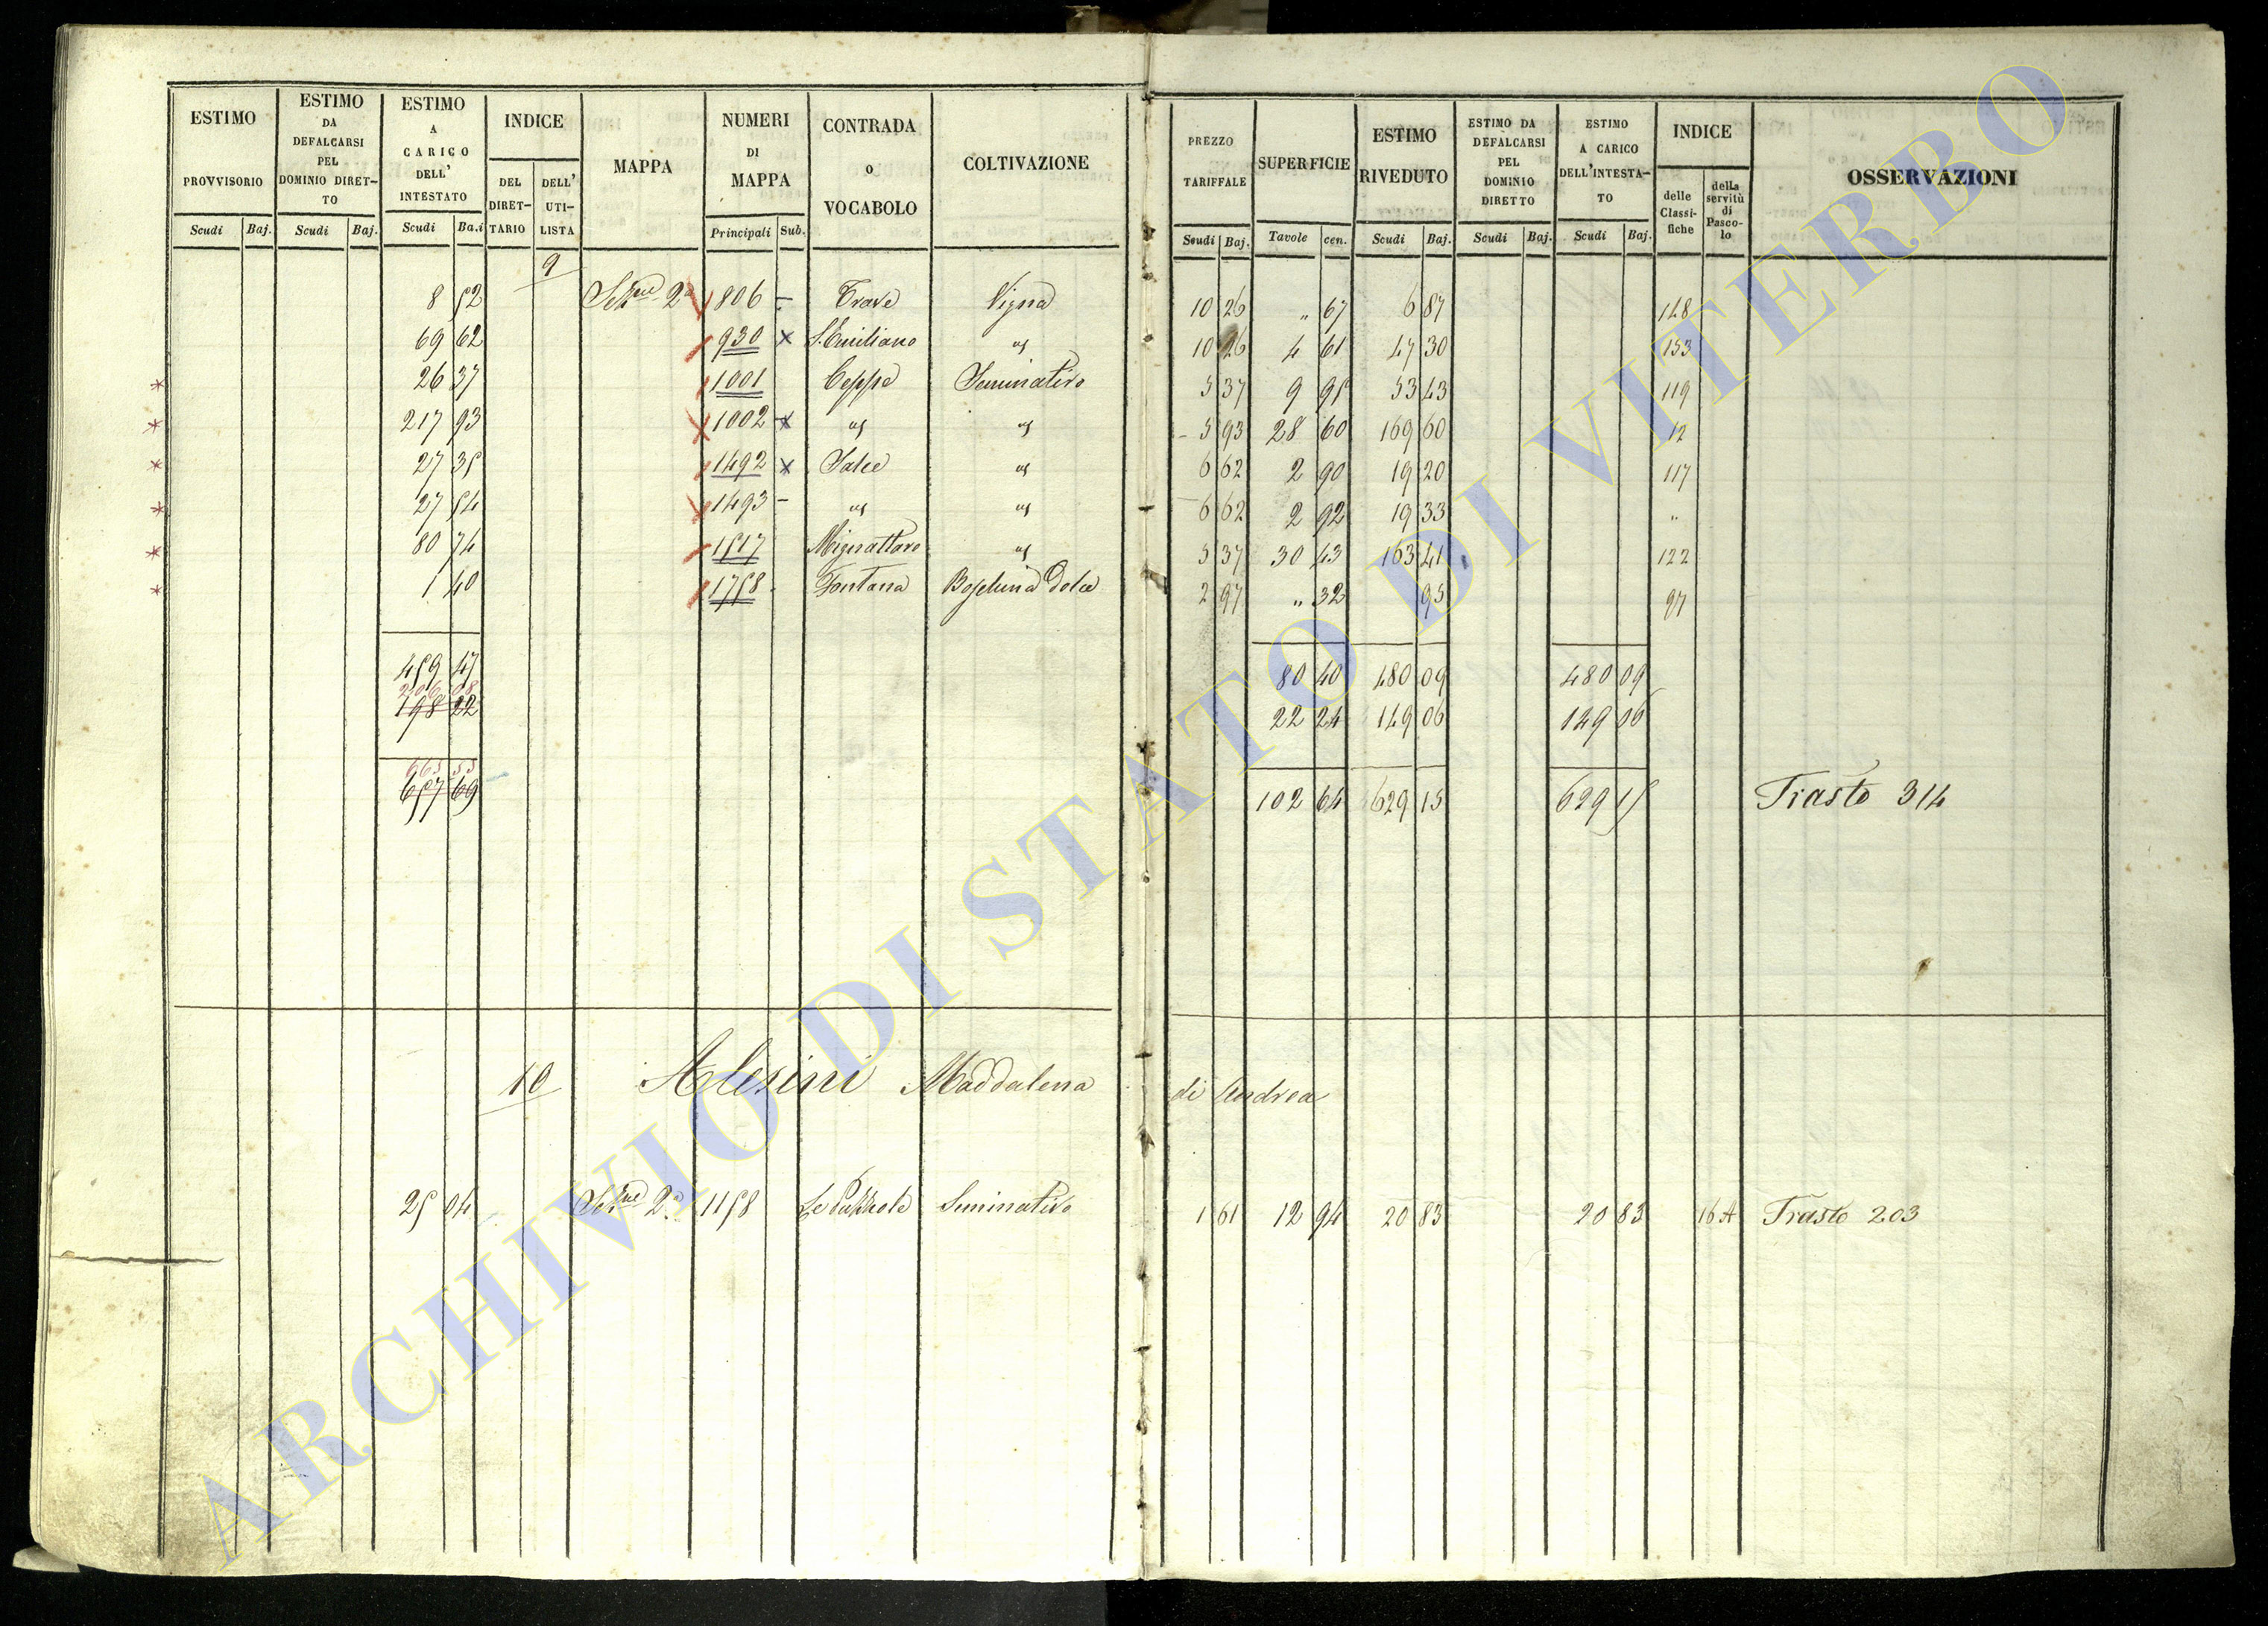 ESTIMO PROVVISORIO Scudi Baj.
ESTIMO DA DEFALCARSI PEL DOMINIO DIRET- TO Scudi Baj.
ESTIMO A CARICO DELL' INTESTATO Scudi Ba.i
INDICE DEL DIRET- TARIO DELL' UTI- LISTA
MAPPA
NUMERI DI MAPPA Principali Sub.
CONTRADA o VOCABOLO
COLTIVAZIONE
PREZZO TARIFFALE Scudi Baj.
SUPERFICIE Tavole cen.
ESTIMO RIVEDUTO Scudi Baj.
ESTIMO DA DEFALCARSI PEL DOMINIO DIRETTO Scudi Baj.
ESTIMO A CARICO DELL'INTESTA- TO Scudi Baj.
INDICE delle Classi- fiche della servitù di Pasco- lo
OSSERVAZIONI
9
8 52 Sezne 2a 806 – Trave Vigna 10 26 „ 67 6 87 148
69 62 930 x S. Emiliano " 10 26 4 61 47 30 153
* 26 37 1001 Ceppe Seminativo 5 37 9 95 53 43 119
* 217 93 1002 x " " 5 93 28 60 169 60 12
* 27 35 1492 x Salce " 6 62 2 90 19 20 117
* 27 54 1493 – " " 6 62 2 92 19 33 "
* 80 74 1517 Mignattaro " 5 37 30 43 163 41 122
* 1 40 1758 Fontana Dolce 2 97 „ 32 95 97
459 47 80 40 480 09 480 09
206 08
198 22 22 24 149 06 149 06
665 55
657 69 102 64 629 15 629 15 Trasto 314
10 Alesini Maddalena di Andrea
25 04 Sezne 2a 1158 Seminativo 1 61 12 94 20 83 20 83 16 A Trasto 203
ARCHIVIO DI STATO DI VITERBO